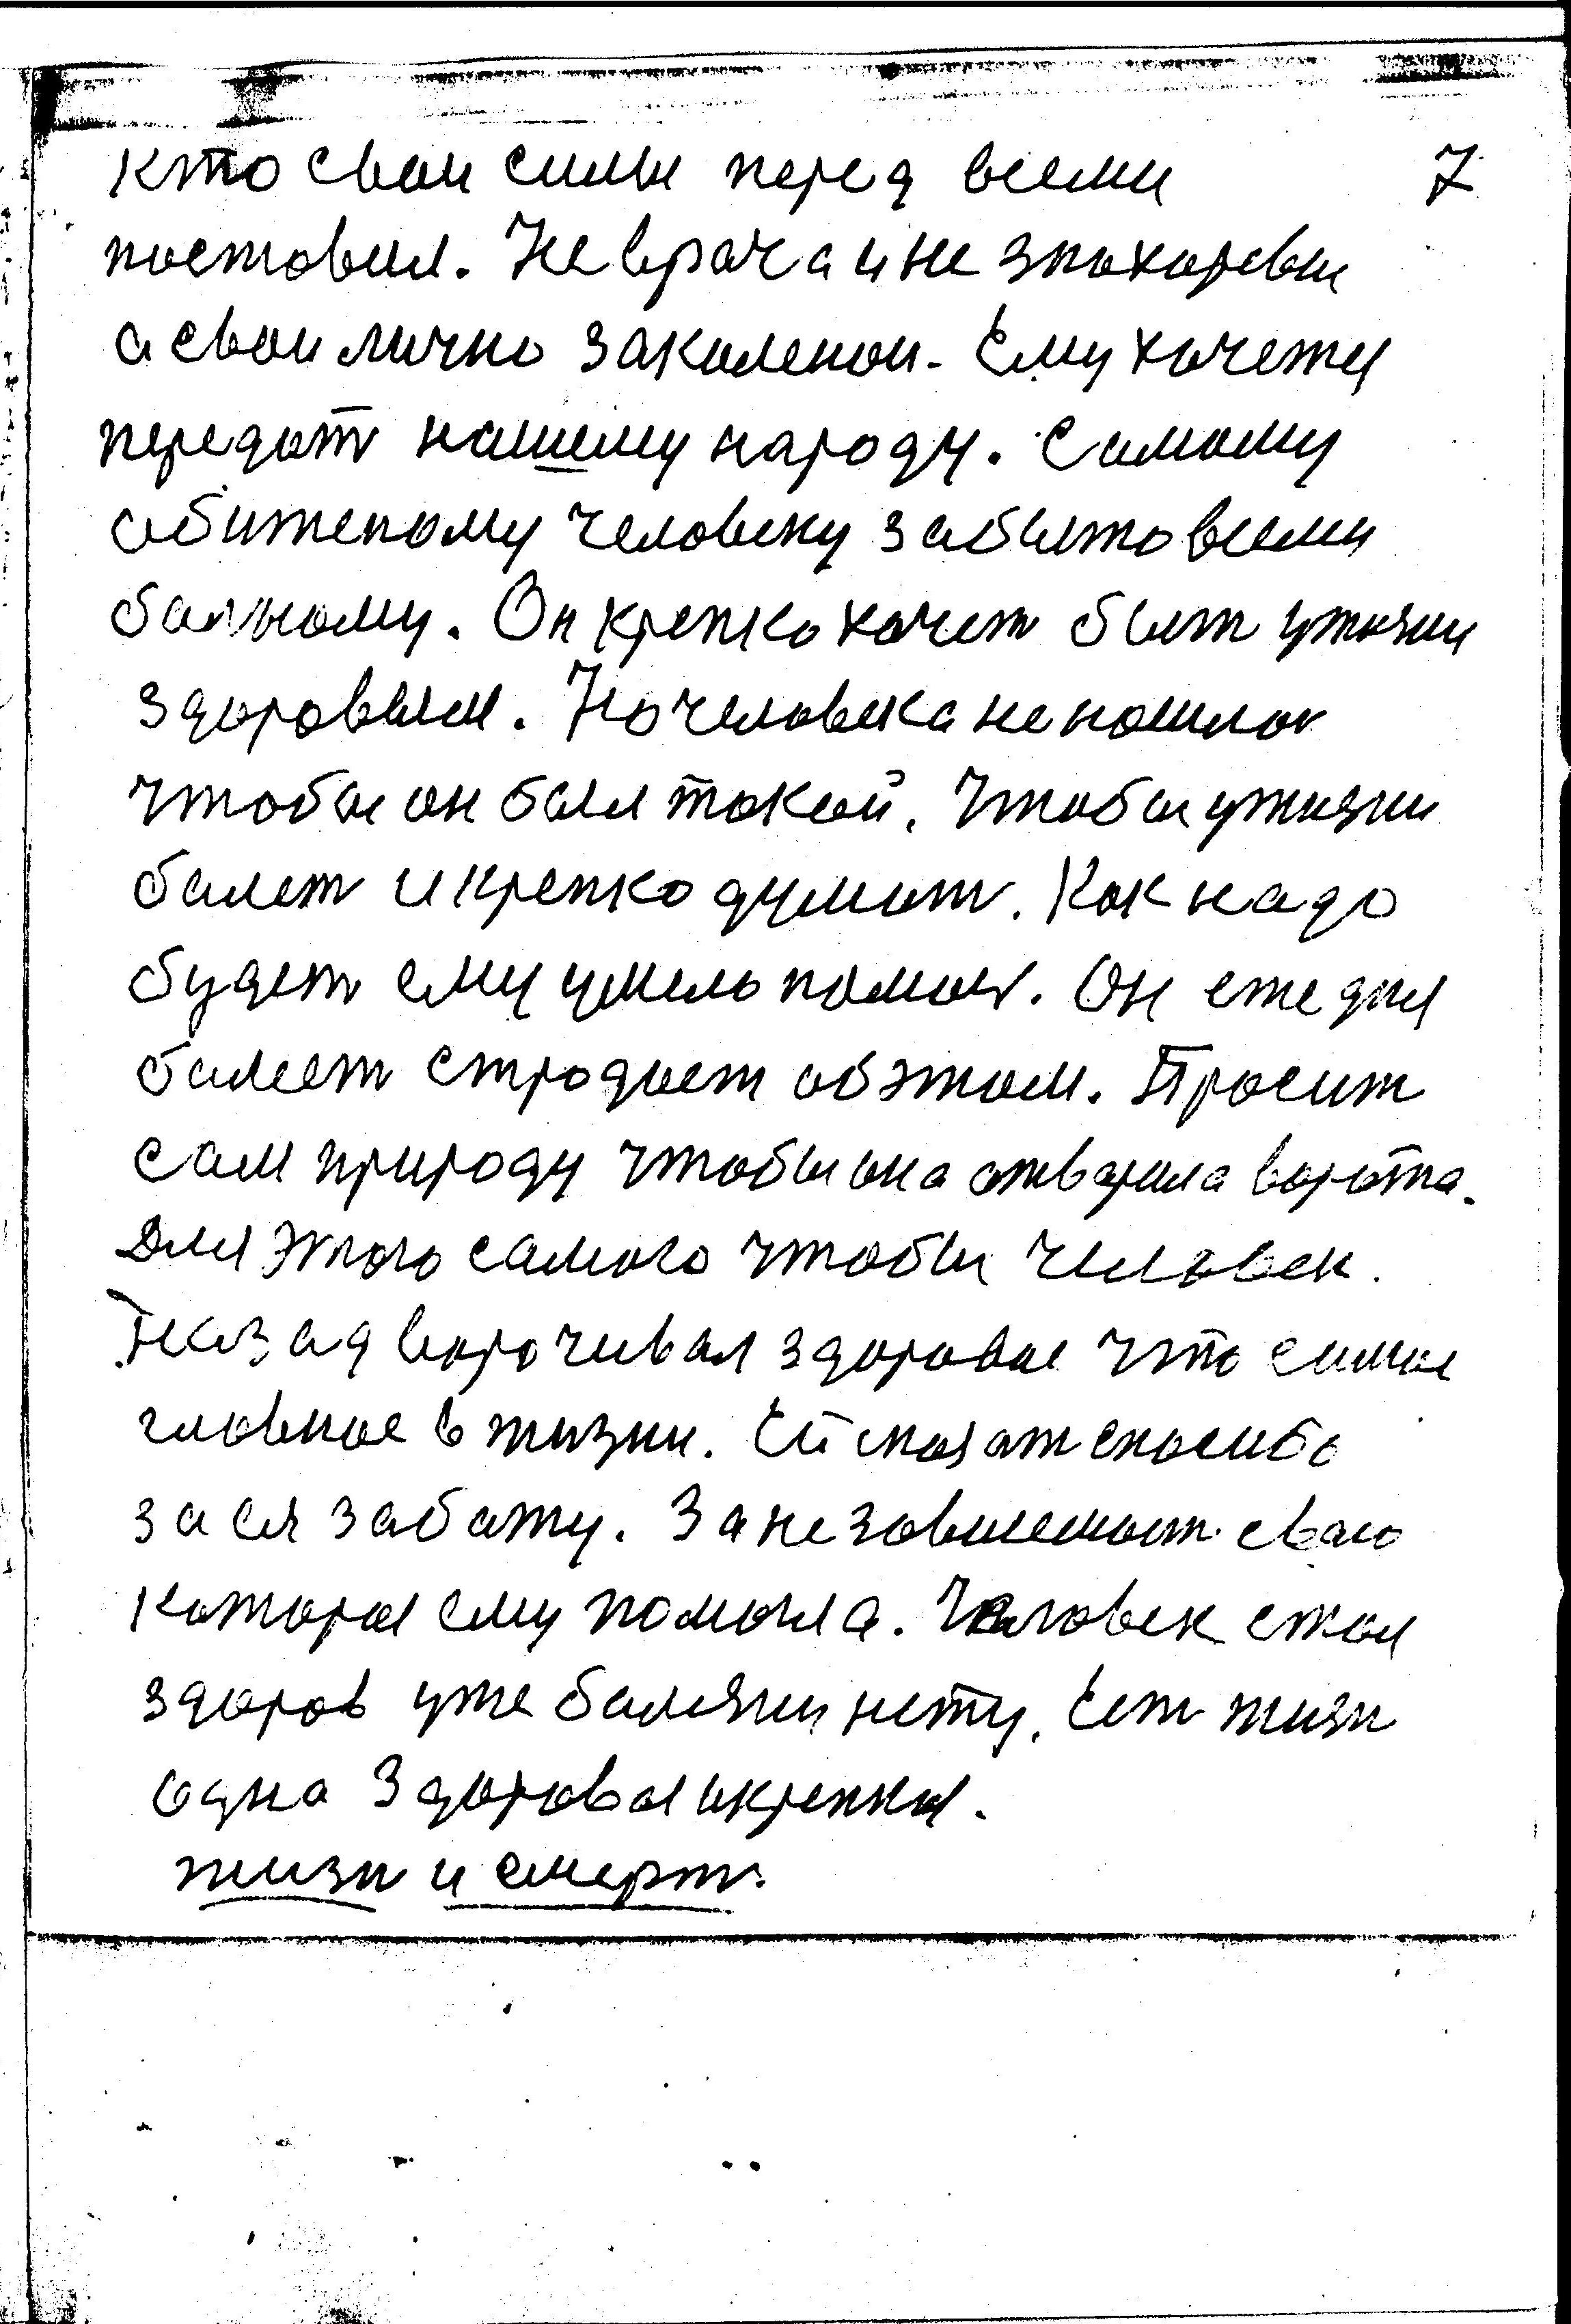 кто свои силы перед всеми 7
поставил. Не врача и не знахоревы
а свои лично закаленои. Ему хочется
передат нашему народу. Самому
обиженому человеку забыто всеми
бальному. Он крепко хочет быт у жизни
здоровым. Но человека не нашлос
чтобы он был такой. Чтобы у жизни
балет и крепко думат. Как надо
будет ему умело помоч. Он еже дня
балеет страдает об этом. Просит
сам природу чтобы она отварила варота.
Для этого самого чтобы человек.
Назад ворочивал здоровие что самое
главное в жизни. Ей сказат спасибо
за ея заботу. За незовисемост сваю
которая ему помогла. Человек стал
здоров уже балезни нету. Ест жизн
одна здоровая и крепкая.
жизн и смерт.